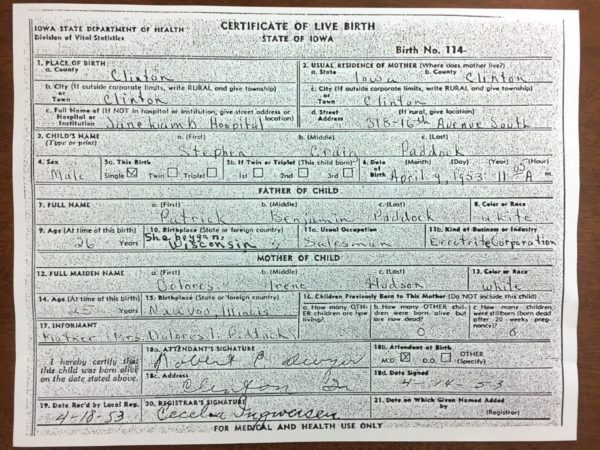 IOWA STATE DEPARTMENT OF HEALTH
Division of Vital Statistics
CERTIFICATE OF LIVE BIRTH
STATE OF IOWA
Birth No. 114-
1. PLACE OF BIRTH
a. County
Clinton
2. USUAL RESIDENCE OF MOTHER (Where does mother live?)
a. State Iowa b. County Clinton
b. City (If outside corporate limits, write RURAL and give township)
or
Town Clinton
c. City (If outside corporate limits, write RURAL and give township)
or
Town Clinton
c. Full Name of (If NOT in hospital or institution, give street address or location)
Hospital or
Institution Jane Lamb Hospital
d. Street (If rural, give location)
Address 318-16th Avenue South
3. CHILD'S NAME a. (First) b. (Middle) c. (Last)
(Type or print) Stephen Craig Paddock
4. Sex 5a. This Birth 5b. If Twin or Triplet (This child born) 6. Date of Birth (Month) (Day) (Year) (Hour)
Male Single Twin Triplet 1st 2nd 3rd April 9, 1953 11:05 A m
FATHER OF CHILD
7. FULL NAME a. (First) b. (Middle) c. (Last) 8. Color or Race
Patrick Benjamin Paddock white
9. Age (At time of this birth) 10. Birthplace (State or foreign country) 11a. Usual Occupation 11b. Kind of Business or Industry
26 Years Sheboygan, Wisconsin Salesman Corporation
MOTHER OF CHILD
12. FULL MAIDEN NAME a. (First) b. (Middle) c. (Last) 13. Color or Race
Dolores Irene Hudson white
14. Age (At time of this birth) 15. Birthplace (State or foreign country)
25 Years Nauvoo, Illinois
16. Children Previously Born to This Mother (Do NOT include this child)
a. How many OTHER children are now living? 0
b. How many OTHER children were born alive but are now dead? 0
c. How many children were stillborn (born dead after 20 weeks pregnancy)? 0
17. INFORMANT
Mother Mrs. Dolores Paddock
I hereby certify that
this child was born alive
on the date stated above.
18a. ATTENDANT'S SIGNATURE
Robert
18b. Attendant at Birth
M.D. D.O. OTHER (Specify)
18c. Address
Clinton Ia
18d. Date Signed
4-14-53
19. Date Rec'd by Local Reg. 20. REGISTRAR'S SIGNATURE 21. Date on Which Given Named Added
4-18-53 Cecelia Ingwersen by (Registrar)
FOR MEDICAL AND HEALTH USE ONLY